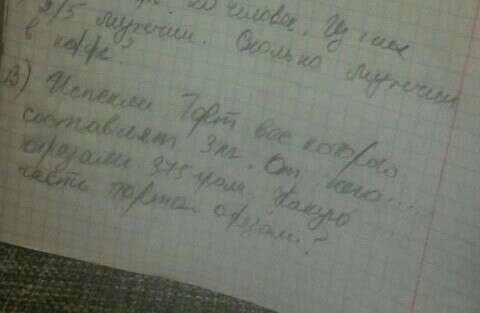 20 человек. Из них
2/5 мужчин. Сколько мужчин
в кафе?
В) Испекли Торт вес которого
составляет 3 кг. От него.....
отрезали 375 грам. Какую
часть торта отрезали?